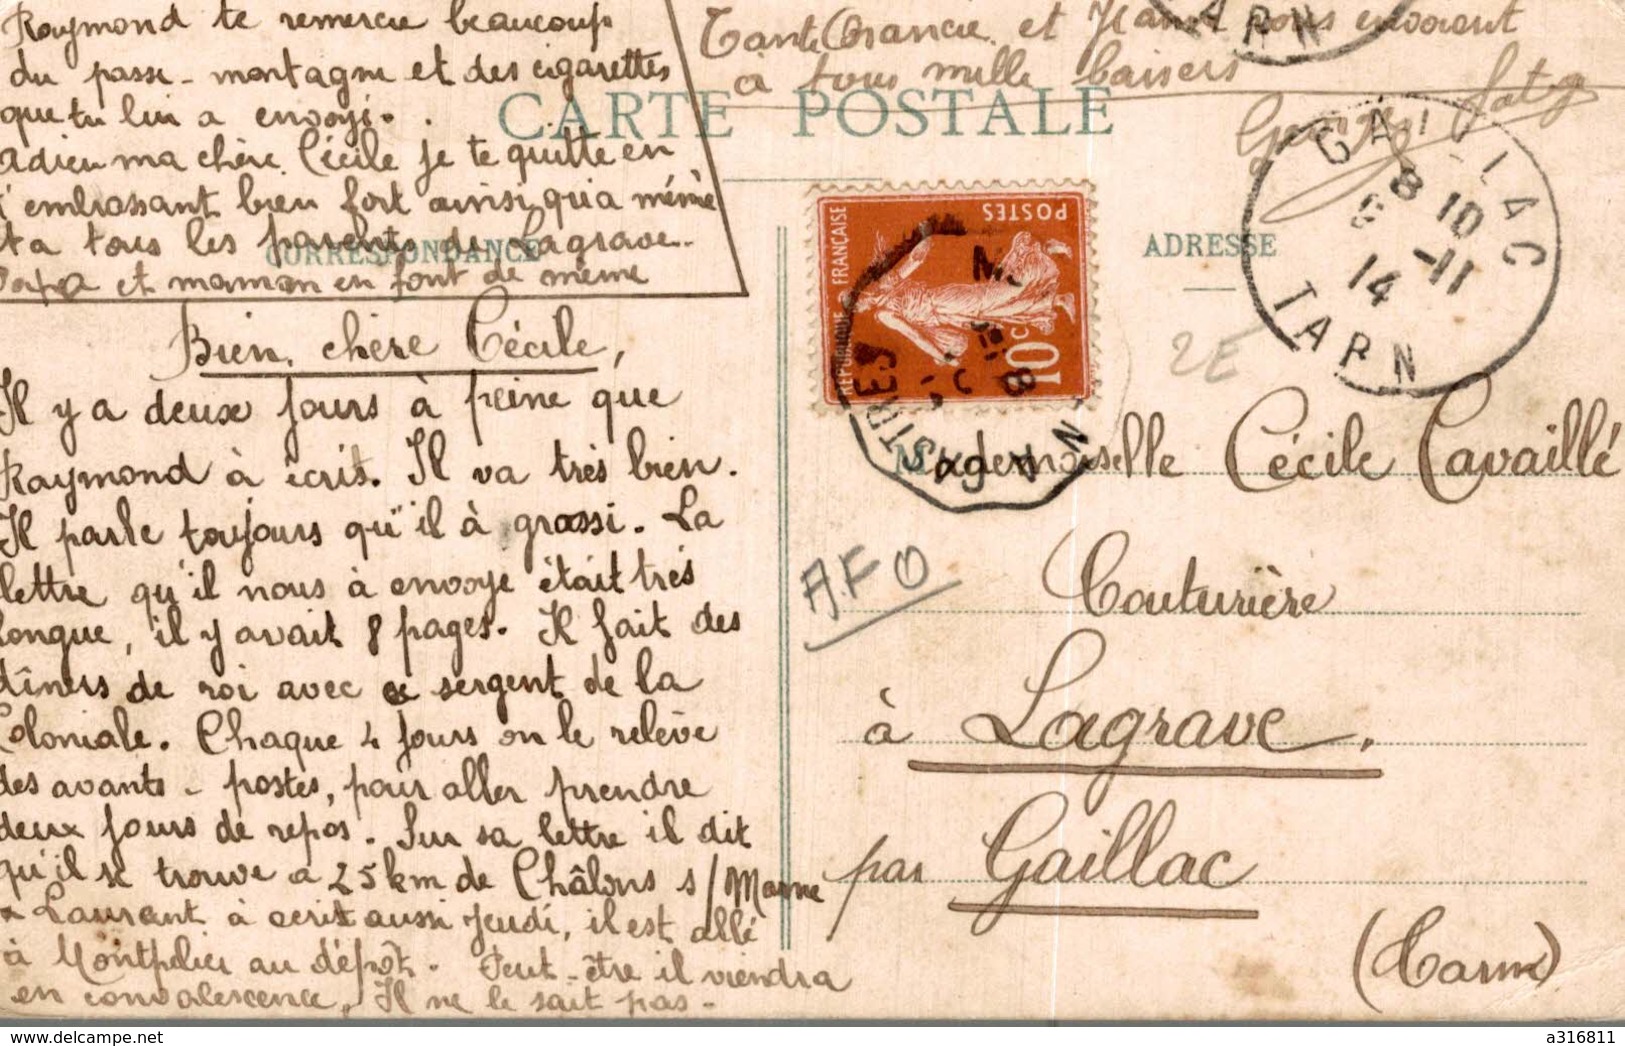 Raymond te remercie beaucoup
du passe-montagne et des cigarettes
que tu lui a envoyé.
Adieu ma chère Cécile je te quitte en
t'embrassant bien fort ainsi qu'a même
ta tous les parents de Lagrave.
Papa et maman en font de même
Tante et vous envoient
à tous mille baisers
CARTE POSTALE
CORRESPONDANCE
ADRESSE
RÉPUBLIQUE FRANÇAISE
POSTES
10c
GAILLAC
8 10
-11
14
TARN
TARN
CASTRES
2E
AFO
Bien chère Cécile,
Il y a deux jours à peine que
Raymond à écris. Il va très bien.
Il parle toujours qu'il à grossi. La
lettre qu'il nous à envoye était très
longue, il y avait 8 pages. Il fait des
dîners de roi avec ce sergent de la
Coloniale. Chaque 4 jours on le relève
des avants-postes, pour aller prendre
deux jours de repos. Sur sa lettre il dit
qu'il se trouve a 25 km de Châlons s/Marne
Laurent à ecrit aussi jeudi, il est allé
à Montpelier au dépôt. Peut-être il viendra
en convalescence, Il ne le sait pas.
Mademoiselle Cécile Cavaillé
Couturière
à Lagrave.
par Gaillac
(Tarn)
a316811